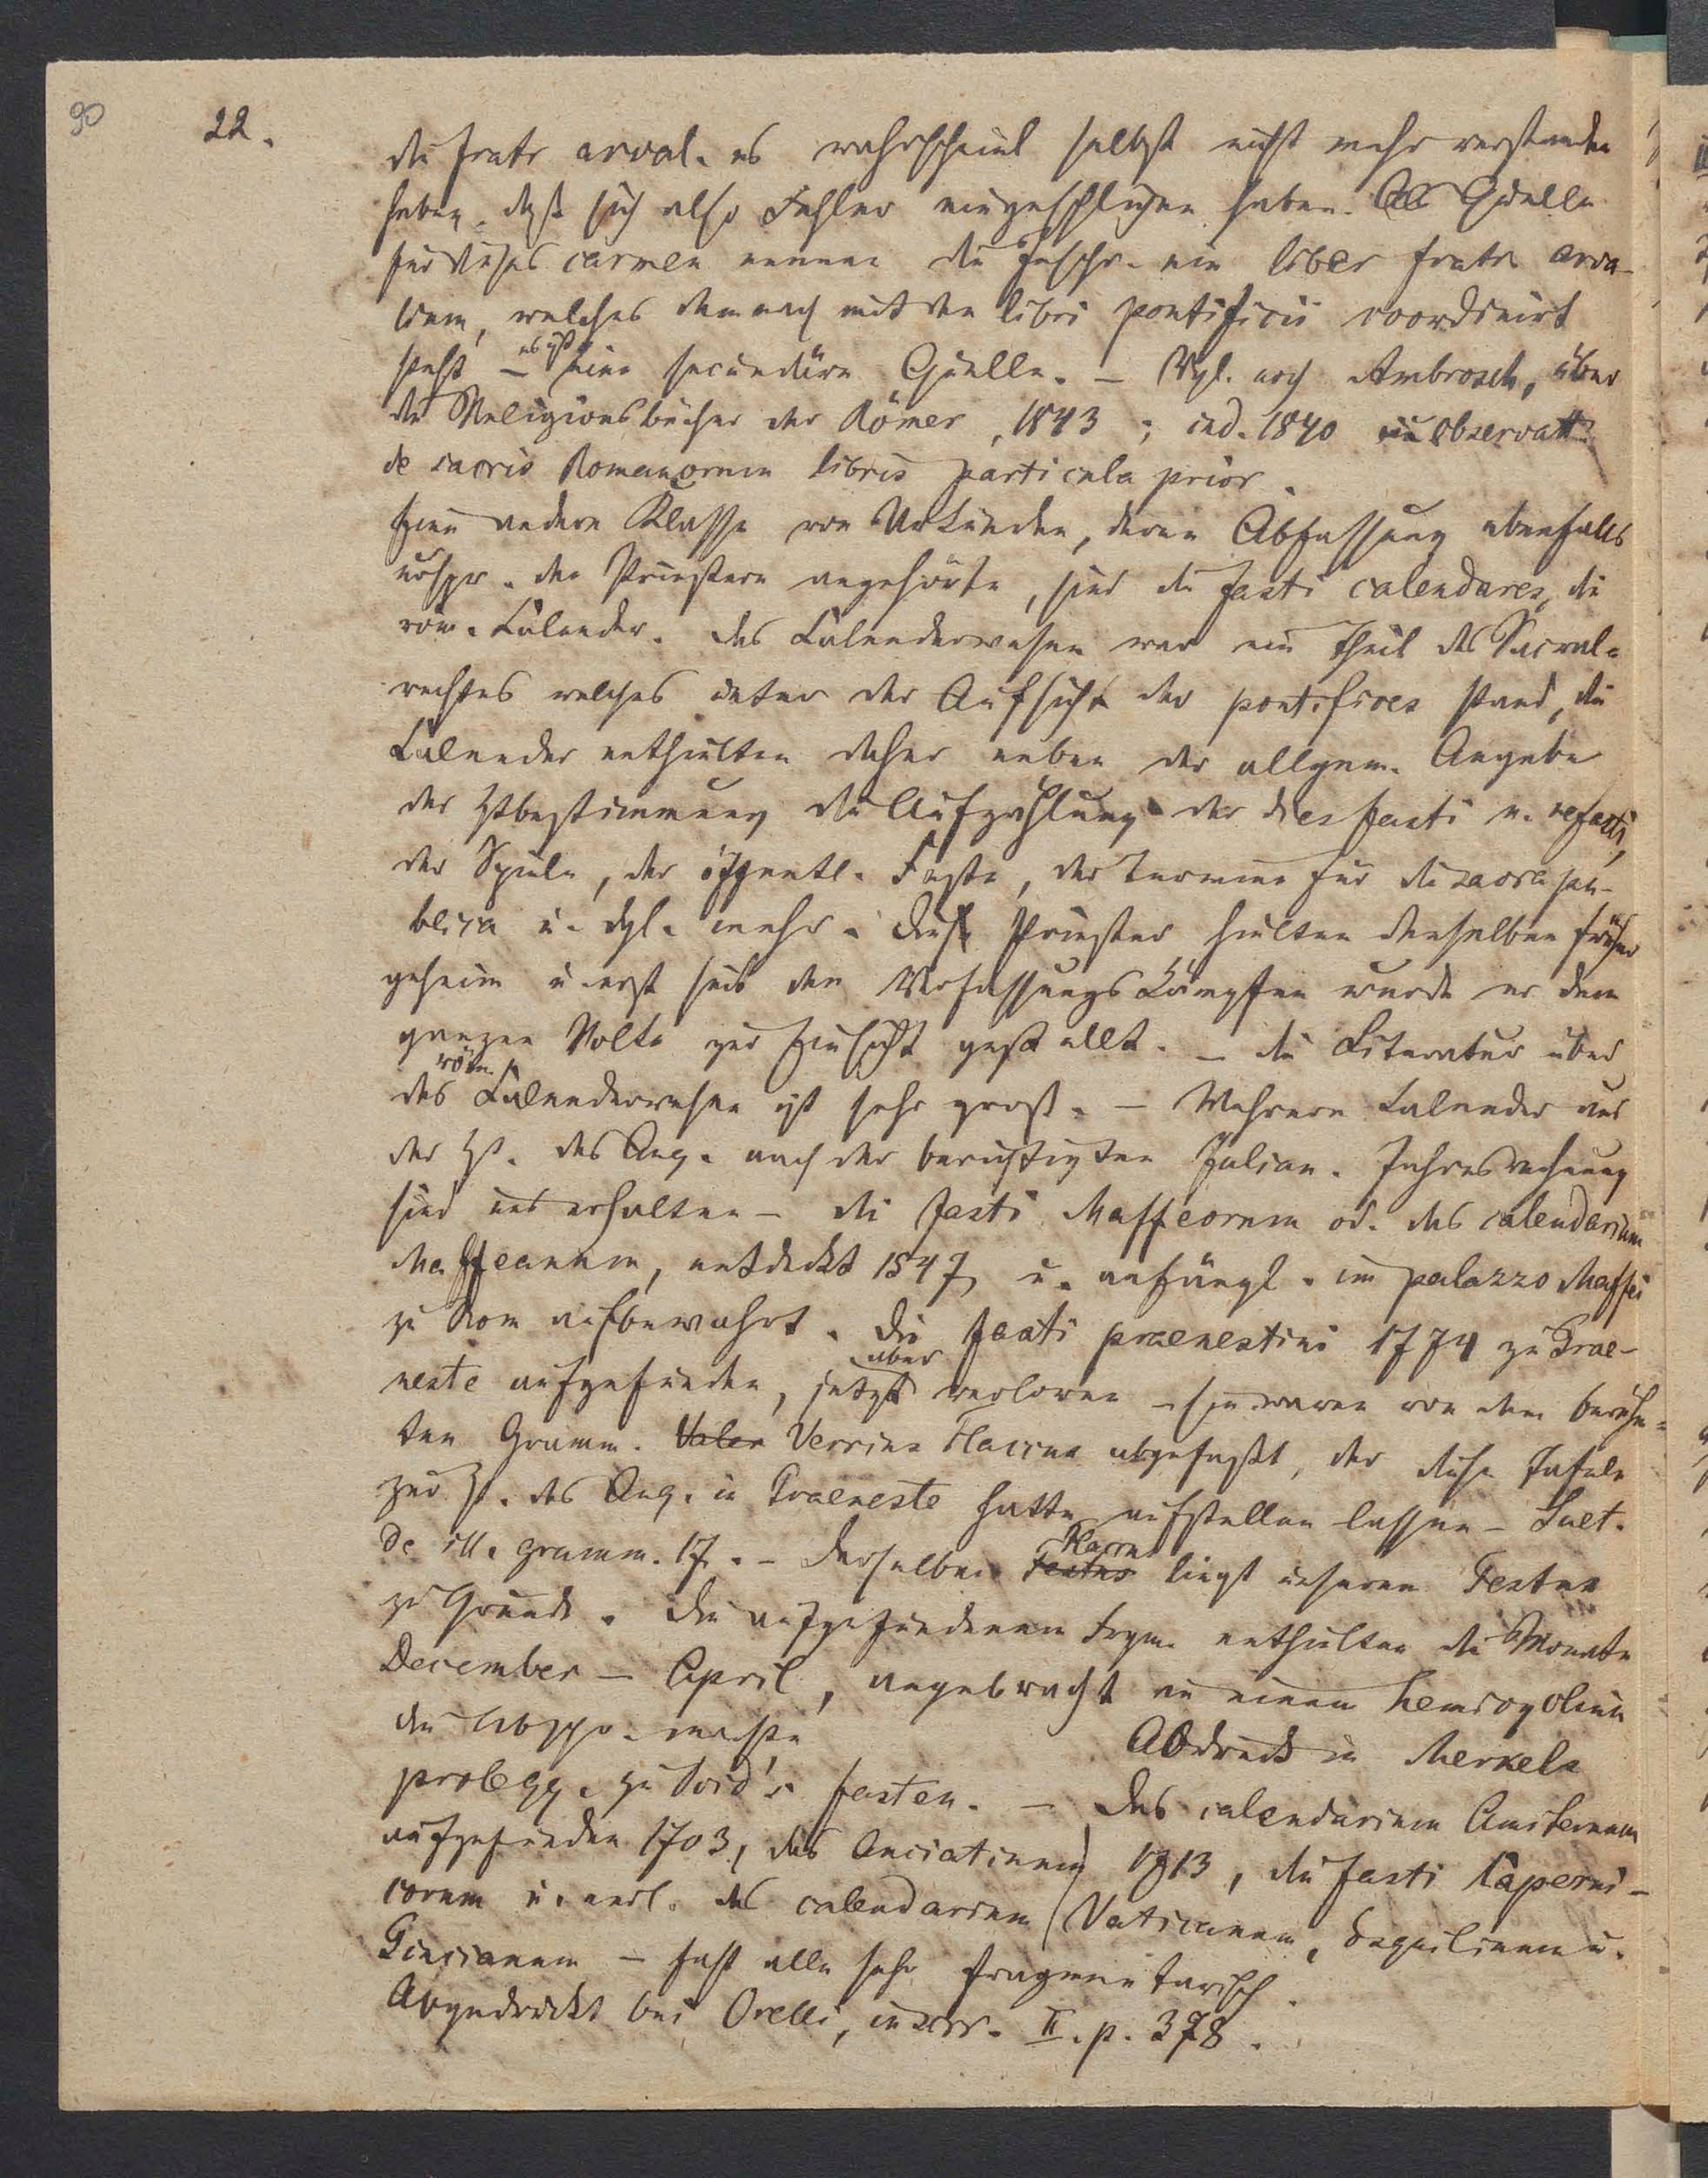 90
22.
die fratr arval. es wahrscheinl selbst nicht mehr verstanden
haben, daß sich also Fehler eingeschlichen haben. Als Quelle
für dieses carmen nennen die Inschr. ein liber fratr. arva-
lium, welches demnach mit den libri pontificii coordinirt
steht – es ist eine secundäre Quelle. – Vgl. noch Ambrosch, über
die Religionsbücher der Römer, 1843; ind. 1840 in observatt.
de sacris Romanorum libris particula prior.
Eine andere Klasse von Urkunden, deren Abfassung ebenfalls
urspr. den Priestern angehörte, sind die fasti calendares, die
röm. Kalender. Das Kalenderwesen war ein Theil des Sacral-
rechtes welches unter der Aufsicht der pontifices stand, die
Kalender enthielten daher neben der allgem. Angabe
der Ztbestimmung die Aufzählung der dies fasti u. nefasti,
der Spiele, der öffentl. Feste, der Termine für die sacra pu-
blica u. dgl. mehr. Diese Priester hielten denselben früher
geheim u. erst seit den Verfassungskämpfen wurde er dem
ganzen Volke zur Einsicht gestellt. – Die Literatur über
das röm. Kalenderwesen ist sehr groß. – Mehrere Kalender aus
der Zt. des Aug. nach der berichtigten Julian. Jahresrechnung
sind uns erhalten – die fasti Maffeorum od. das calendarium
Maffeanum, entdeckt 1547, u. anfängl. im palazzo Maffei
zu Rom aufbewahrt. Die fasti praenestini 1774 zu Prae-
neste aufgefunden, jetzt aber verloren – sie waren von dem berühm-
ten Gramm. Valer Verrius Flaccus abgefaßt, der diese Tafeln
zur Zt. des Aug. in Praeneste hatte aufstellen lassen – Suet.
de ill. gramm. 17. – Derselbe Festus Flaccus liegt unserem Festus
zu Grunde. Die aufgefundenen Fragm. enthielten die Monate
December – April, angebracht an einem hemicyclium
die Abschr. machte Abdruck in Merkels
prolegg. zu Ovid's fasten. – Das calendarium Amiternum
aufgefunden 1703, das Anciatinum 1713, die fasti Caperni-
corum u. endl. das calendarium Vaticanum, Esquilinum u.
Pincianum – fast alle sehr fragmentarisch.
Abgedruckt bei Orelli, inscr. II. p. 378.